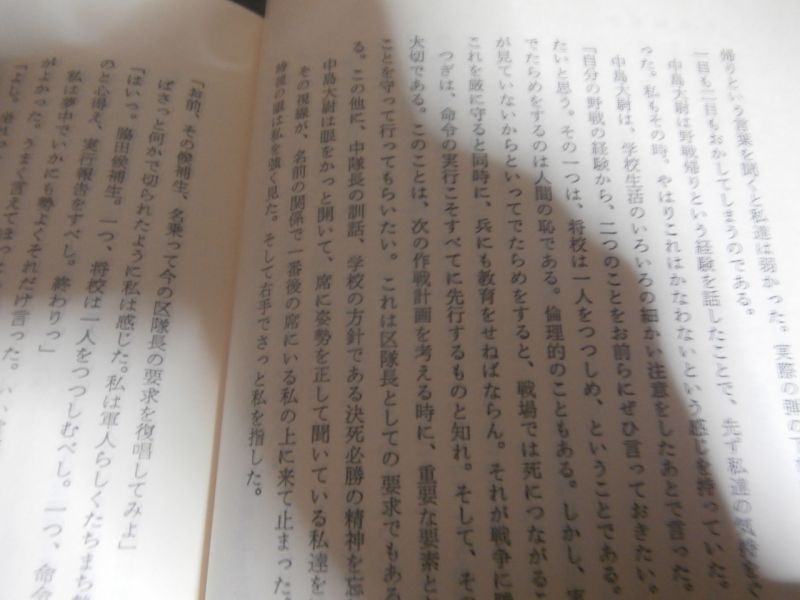 帰りという言葉を聞くと私達は弱かった。実際の弾の下
一目も二目もおかしてしまうのである。
中島大尉は野戦帰りという経験を話したことで、先ず私達の気持をぐ
った。私もその時、やはりこれはかなわないという感じを持っていた。
中島大尉は、学校生活のいろいろの細かい注意をしたあとで言った。
「自分の野戦の経験から、二つのことをお前らにぜひ言っておきたい。
たいと思う。その一つは、将校は一人をつつしめ、ということである。
でたらめをするのは人間の恥である。倫理的のこともある。しかし、実
が見ていないからといってでたらめをすると、戦場では死につながるこ
これを厳に守ると同時に、兵にも教育をせねばならん。それが戦争に勝
つぎは、命令の実行こそすべてに先行するものと知れ。そして、その
大切である。このことは、次の作戦計画を考える時に、重要な要素と
ことを守って行ってもらいたい。これは区隊長としての要求でもある
る。この他に、中隊長の訓話、学校の方針である決死必勝の精神を忘
中島大尉は眼をかっと開いて、席に姿勢を正して聞いている私達を
その視線が、名前の関係で一番後の席にいる私の上に来て止まった。
の眼は私を強く見た。そして右手でさっと私を指した。
「お前、その候補生、名乗って今の区隊長の要求を復唱してみよ」
ばさっと何かで切られたように私は感じた。私は軍人らしくたちまち
「はいっ。脇田候補生。一つ、将校は一人をつつしむべし。一つ、命令
のと心得え、実行報告をすべし。終わりっ」
私は夢中でいかにも勢よくそれだけ言った。
がよかった。うまく言えてほっ
「よし。